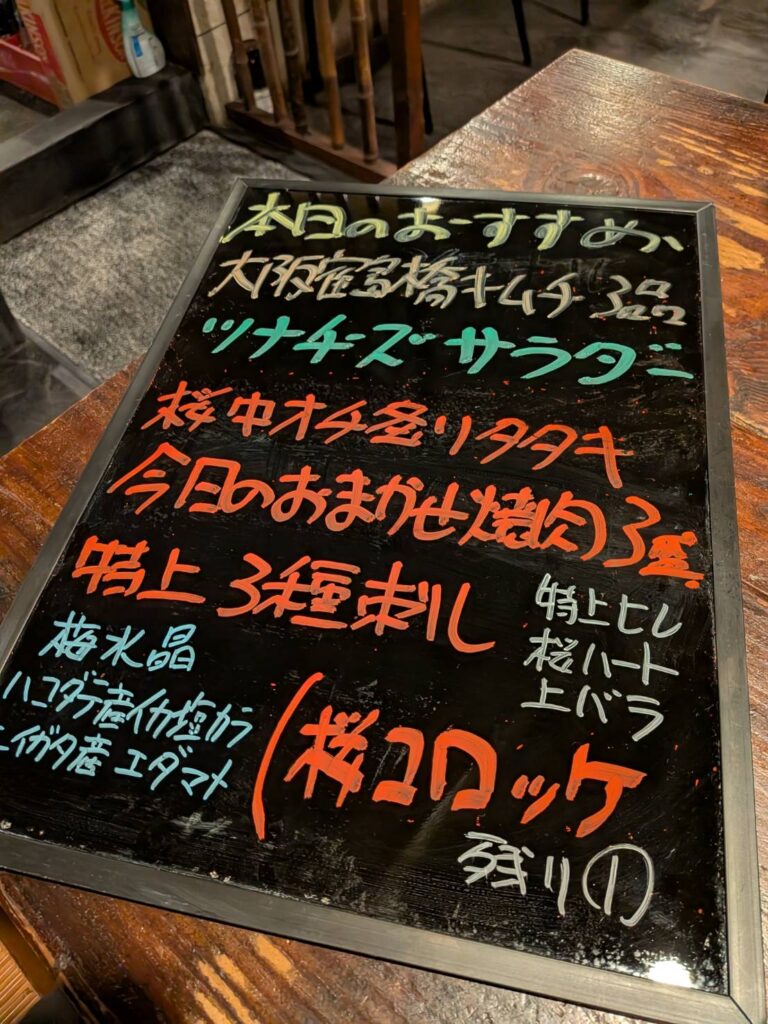 本日のおーすすめ
大阪寉島橋キムチ 3品
ツナチーズサラダ
桜中オチ炙りタタキ
今日のおまかせ焼肉3盛
特上 3種刺し
特上ヒレ
桜ハート
上バラ
梅水晶
ハコダテ産イカ塩カラ
ニイガタ産 エダマト
(桜コロッケ
残り①